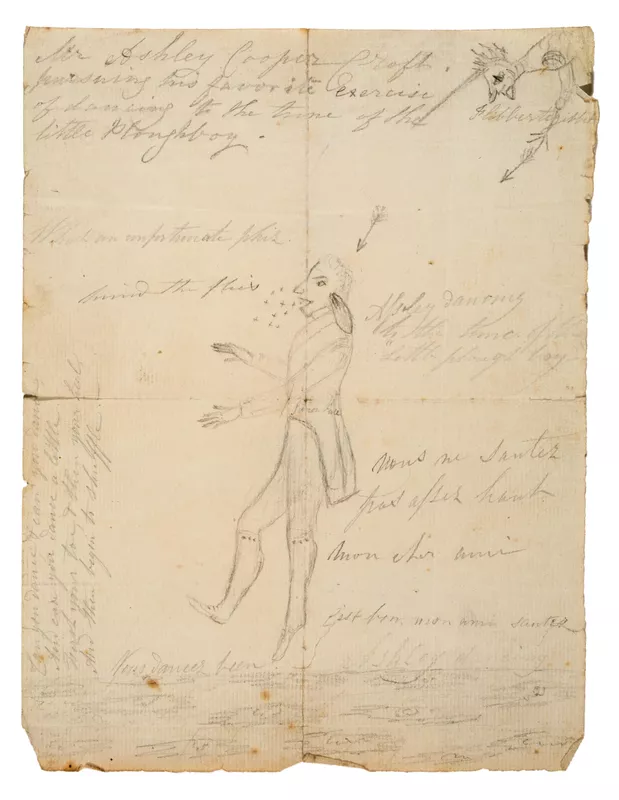 Mr Ashley Cooper Croft.
pursuing his favorite Exercise
of dancing to the tune of the
little Ploughboy.
Flibbertigibbet
What an unfortunate phiz
mind the flies
Ashley dancing
to the tune of the
little plough boy
Vous ne sautez
pas assez haut
mon cher ami
C'est bon mon ami sautez
Ashley dancing
Vous dancez bien
Can you dance Jean
And can you dance a little
your toe & then your heel
And then begin to shuffle